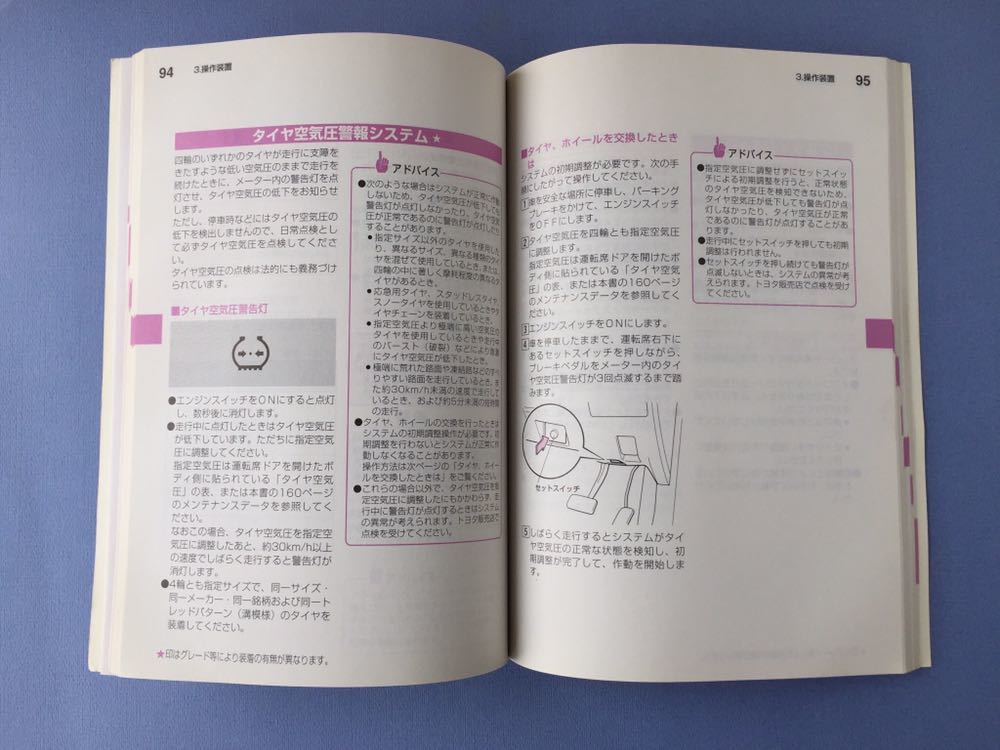 94
3.操作装置
タイヤ空気圧警報システム★
四輪のいずれかのタイヤが走行に支障を
きたすような低い空気圧のままで走行を
続けたときに、メーター内の警告灯を点
灯させ、タイヤ空気圧の低下をお知らせ
します。
ただし、停車時などにはタイヤ空気圧の
低下を検出しませんので、日常点検とし
て必ずタイヤ空気圧を点検してくださ
い。
タイヤ空気圧の点検は法的にも義務づけ
られています。
■タイヤ空気圧警告灯
●エンジンスイッチをONにすると点灯
し、数秒後に消灯します。
●走行中に点灯したときはタイヤ空気圧
が低下しています。ただちに指定空気
圧に調整してください。
指定空気圧は運転席ドアを開けたボ
ディ側に貼られている「タイヤ空気
圧」の表、または本書の160ページ
のメンテナンスデータを参照してく
ださい。
なおこの場合、タイヤ空気圧を指定空
気圧に調整したあと、約30km/h以上
の速度でしばらく走行すると警告灯が
消灯します。
●4輪とも指定サイズで、同一サイズ・
同一メーカー・同一銘柄および同一ト
レッドパターン（溝模様）のタイヤを
装着してください。
★印はグレード等により装着の有無が異なります。
アドバイス
●次のような場合はシステムが正常に作動
しないため、タイヤ空気圧が低下しても
警告灯が点灯しなかったり、タイヤ空気
圧が正常であるのに警告灯が点灯したり
することがあります。
●指定サイズ以外のタイヤを使用した
り、異なるサイズ、異なる種類のタイ
ヤを混ぜて使用しているとき、または、
四輪の中に著しく摩耗程度の異なるタ
イヤがあるとき。
●応急用タイヤ、スタッドレスタイヤ、
スノータイヤを使用しているときやタ
イヤチェーンを装着しているとき
●指定空気圧より極端に高い空気圧の
タイヤを使用しているときや走行中
のバースト（破裂）などにより急激
にタイヤ空気圧が低下したとき。
●極端に荒れた路面や凍結路などのすべ
りやすい路面を走行しているとき、ま
た約30km/h未満の速度で走行して
いるとき、および約5分未満の短時間
の走行。
●タイヤ、ホイールの交換を行ったときは
システムの初期調整操作が必要です。初
期調整を行わないとシステムが正常に作
動しなくなることがあります。
操作方法は次ページの「タイヤ、ホイー
ルを交換したときは」をご覧ください。
●これらの場合以外で、タイヤ空気圧を指
定空気圧に調整したにもかかわらず、走
行中に警告灯が点灯するときはシステム
の異常が考えられます。トヨタ販売店で
点検を受けてください。
3.操作装置
95
■タイヤ、ホイールを交換したとき
は
システムの初期調整が必要です。次の手
順にしたがって操作してください。
1 車を安全な場所に停車し、パーキング
ブレーキをかけて、エンジンスイッチ
をOFFにします。
2 タイヤ空気圧を四輪とも指定空気圧
に調整します。
指定空気圧は運転席ドアを開けたボ
ディ側に貼られている「タイヤ空気
圧」の表、または本書の160ページ
のメンテナンスデータを参照してく
ださい。
3 エンジンスイッチをONにします。
4 車を停車したままで、運転席右下に
あるセットスイッチを押しながら、
ブレーキペダルをメーター内のタイ
ヤ空気圧警告灯が3回点滅するまで踏
みます。
セットスイッチ
5 しばらく走行するとシステムがタイ
ヤ空気圧の正常な状態を検知し、初
期調整が完了して、作動を開始しま
す。
アドバイス
●指定空気圧に調整せずにセットスイッ
チによる初期調整を行うと、正常状態
のタイヤ空気圧を検知できないため、
タイヤ空気圧が低下しても警告灯が点
灯しなかったり、タイヤ空気圧が正常
であるのに警告灯が点灯することがあ
ります。
●走行中にセットスイッチを押しても初期
調整は行われません。
●セットスイッチを押し続けても警告灯が
点滅しないときは、システムの異常が考
えられます。トヨタ販売店で点検を受け
てください。